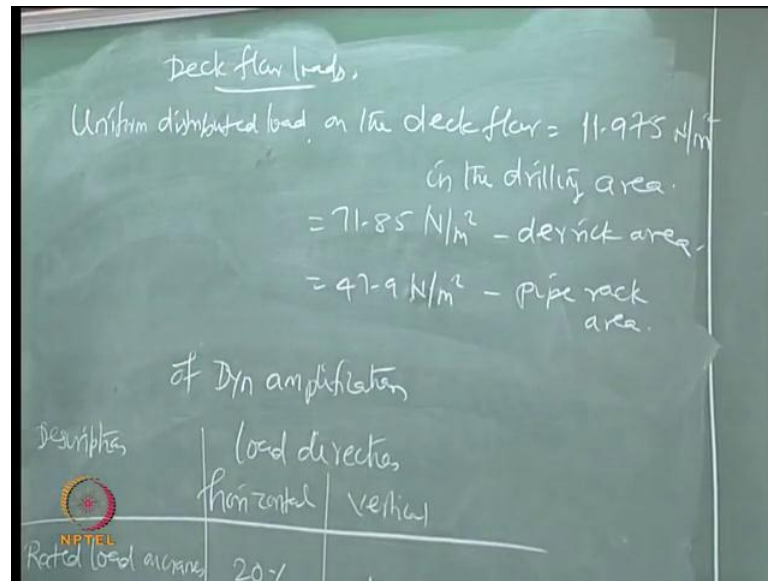 Deck floor loads.
Uniform distributed load, on the deck floor = 11.975 N/m²
in the drilling area.
= 71.85 N/m² - derrick area.
= 47.9 N/m² - pipe rack
area.
of Dyn amplification
Description
load direction
horizontal | vertical
NPTEL
Rated load on cranes 20%